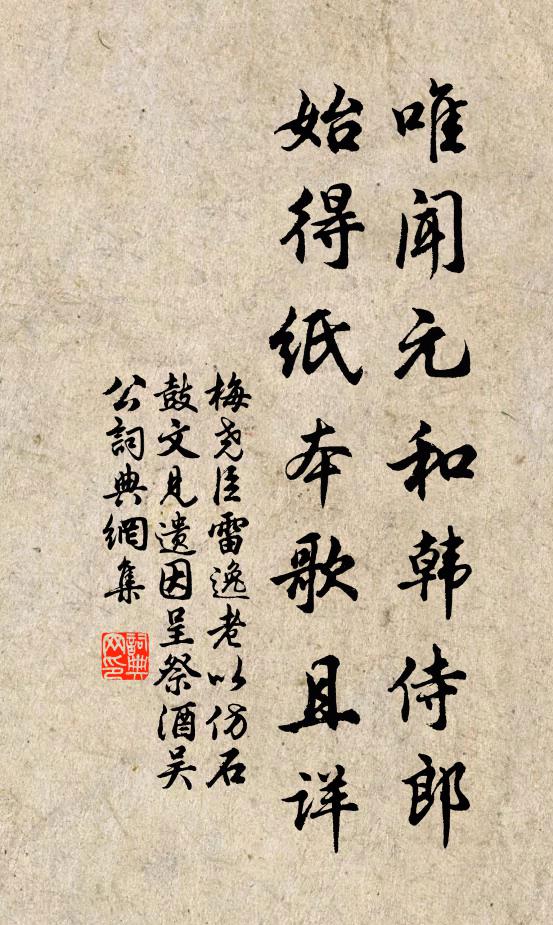 唯闻元和韩侍郎
始得纸本歌且详
梅尧臣雷逸老以仿石
鼓文见遗因呈祭酒吴
公詞典網集
詞典
网印